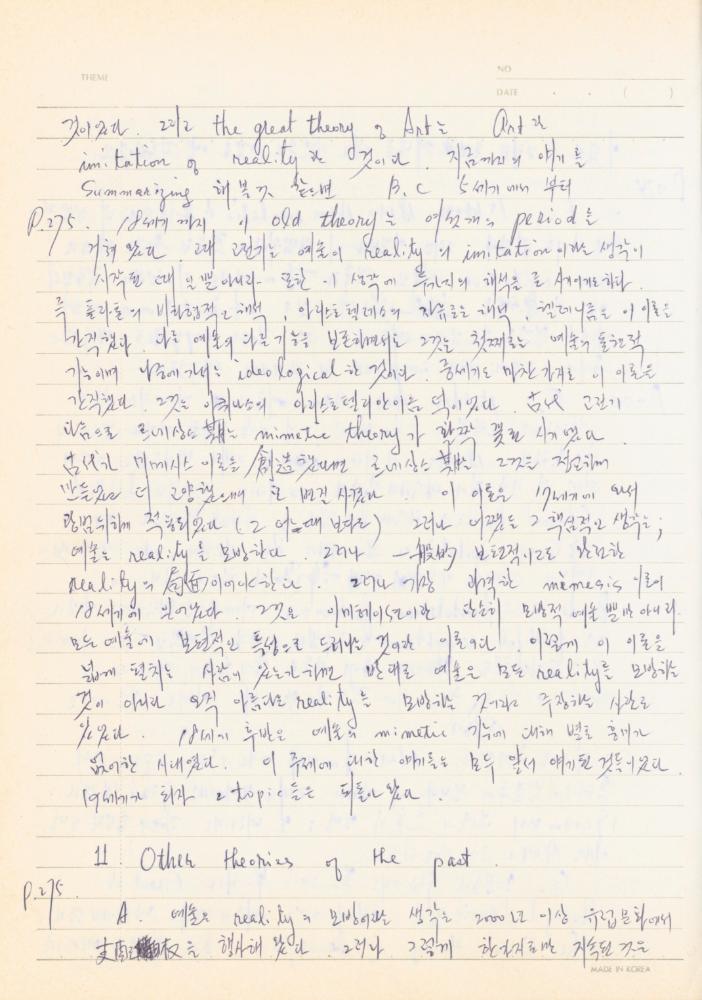 THEME
NO
DATE . . ( )
것이었다. 그리고 the great theory of Art는 Art란
imitation of reality란 것이다. 지금까지의 얘기를
Summarizing 해본것 같으면 B.C 5세기에서 부터
P.275. 18세기까지 이 old theory는 여섯개의 period를
거쳐 왔다. 고대 고전기는 예술이 reality의 imitation이라는 생각이
시작된 때일뿐 아니라 또한 이 생각에 두가지의 해석을
즉 플라톤의 해석, 아리스토텔레스의 자유로운 해석. 헬레니즘은 이 이론을
간직했다. 다른 예술의 다른 기능을 보존하면서도 그것은 첫째로는 예술의 표현적
기능이며 나중에 가서는 ideological한 것이다. 중세기도 마찬가지로 이 이론을
간직했다. 그것은 아퀴나스의 아리스토텔리안이즘 덕이었다. 古代 고전기
다음으로 르네상스 mimetic theory가 활짝 꽃핀 시기였다.
古代가 미메시스 이론을 創造했다면 르네상스 그것을 정교하게
만들었고 더 고양했으며 변질시켰다 이 이론은 17세기에 와서
광범위하게 적용되었다 (그 어느때보다도) 그러나 어쨌든 그 핵심적인 생각은;
예술은 reality를 모방한다. 그러나 一般的 보편적이고도 완전한
reality의 局面이어야 한다. 그러나 가장 과격한 mimesis 이론이
18세기에 일어났다. 그것은 이미테이션이란 단순히 모방적 예술뿐만 아니라
모든 예술에 보편적인 특성으로 드러나는 것이란 이론이다. 이렇게 이 이론을
넓게 펼치는 사람이 있는가하면 반대로 예술은 모든 reality를 모방하는
것이 아니라 오직 아름다운 reality를 모방하는 것이라고 주장하는 사람도
있었다. 18세기 후반은 예술의 mimetic 기능에 대해 별로 흥미가
없어한 시대였다. 이 주제에 대한 얘기들은 모두 앞서 얘기된 것들이었다.
19세기가 되자 그 topic들은 되돌아 왔다.
11. Other theories of the past.
P.275
A 예술은 reality의 모방이라는 생각은 2000년 이상 유럽문화에서
支配 을 행사해 왔다. 그러나 그렇게 한가지로만 지속된 것은
MADE IN KOREA